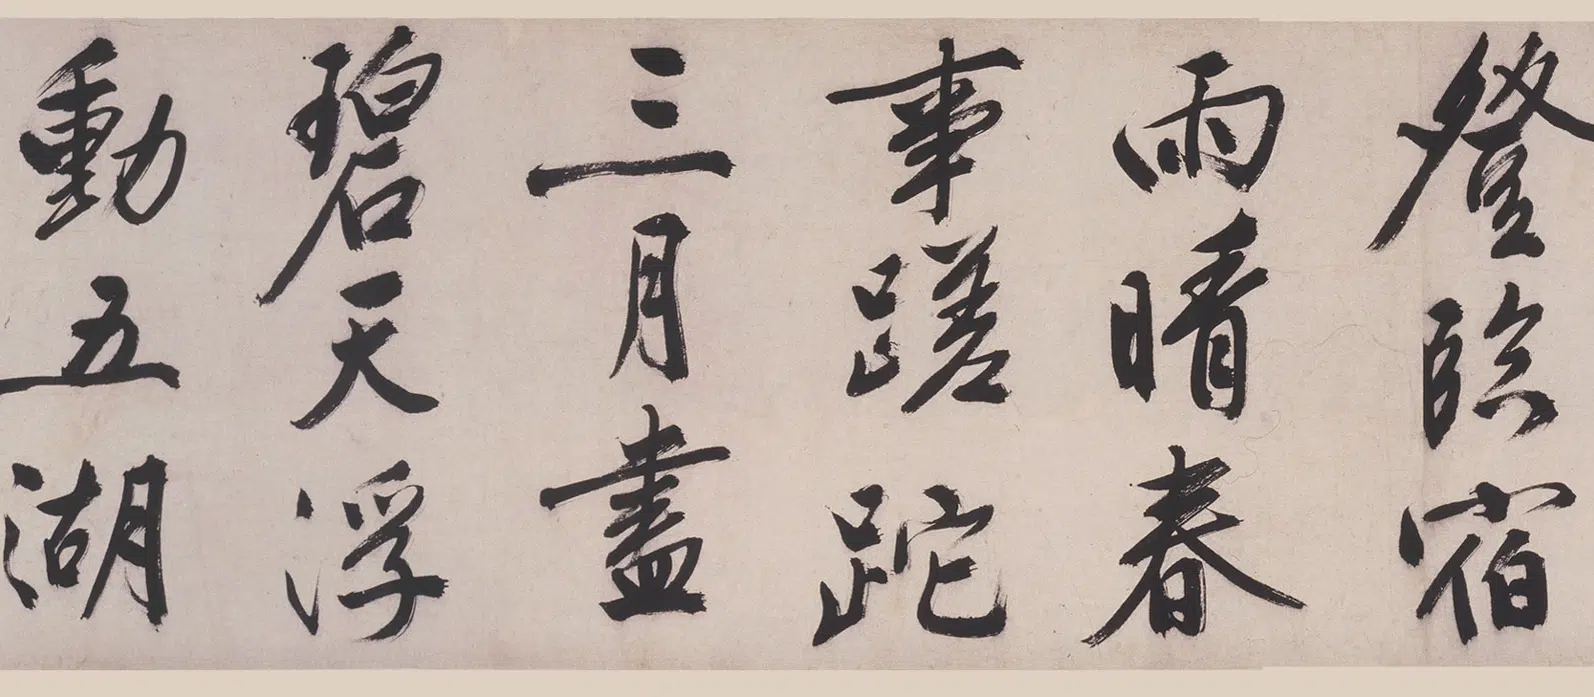 登臨宿
雨晴春
事蹉跎
三月盡
碧天浮
動五湖